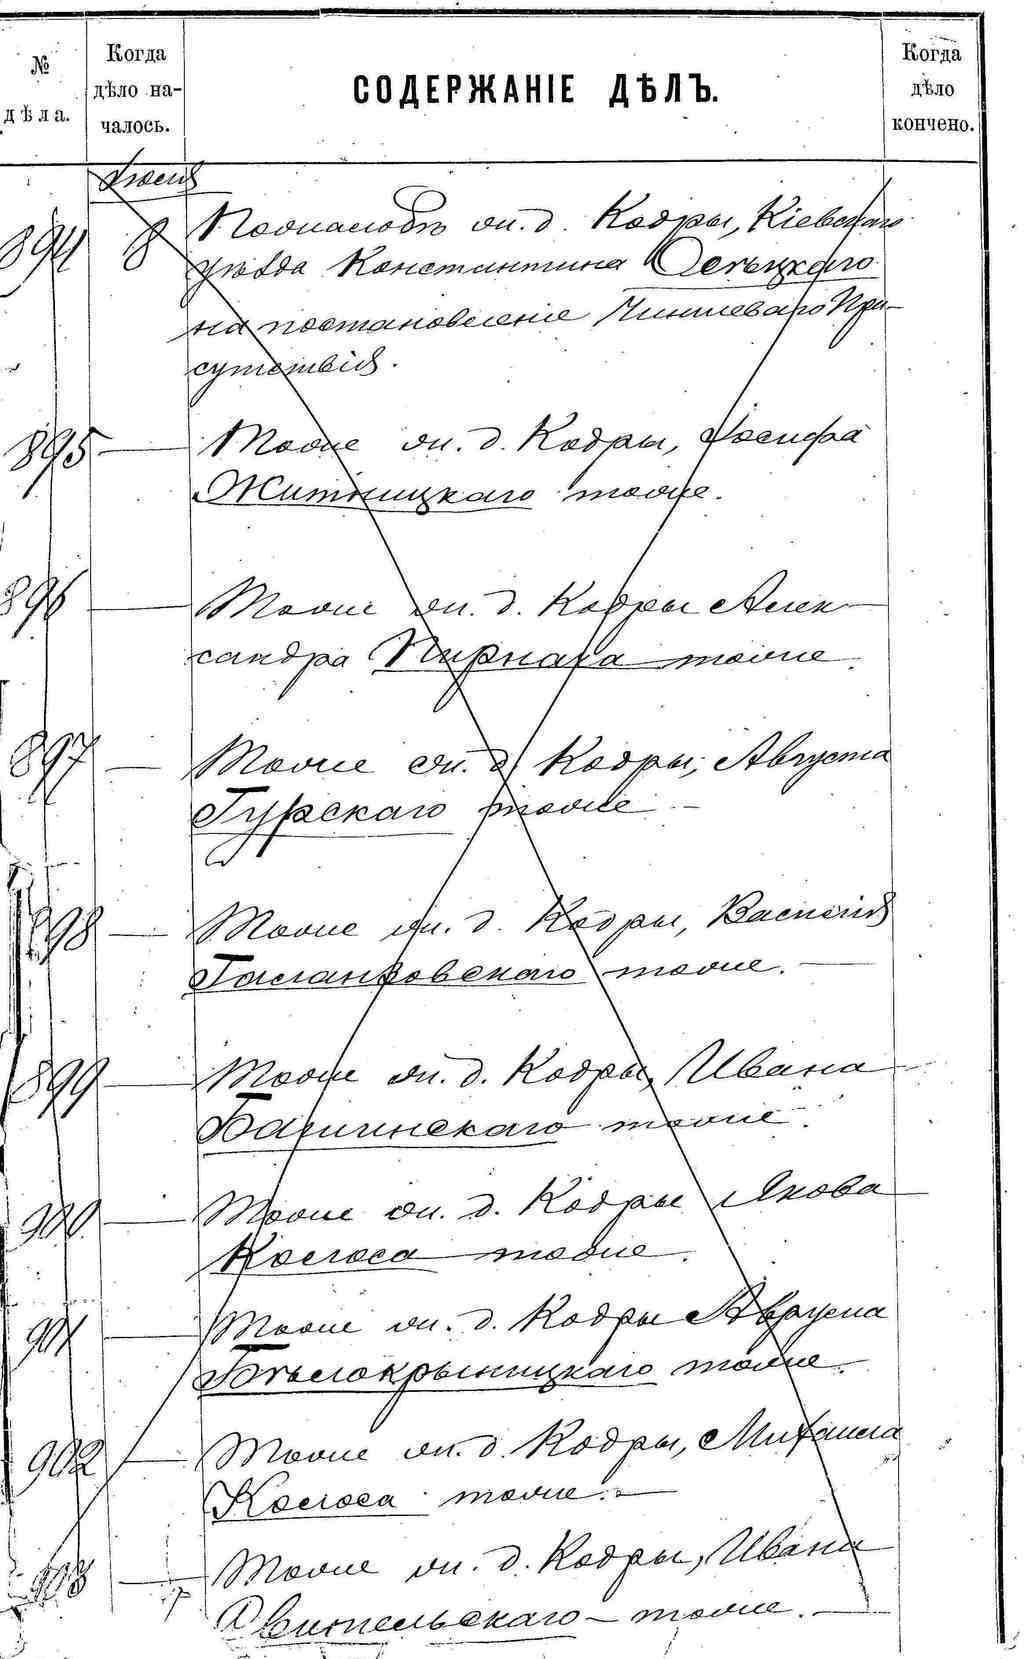 № дѣла.
Когда дѣло на-чалось.
СОДЕРЖАНІЕ ДѢЛЪ.
Когда дѣло кончено.
894 8 По жалобѣ ж. д. Кодры, Кіевскаго
уѣзда Константина
на постановленіе Чиншеваго При-
сутствія.
895 — Тоже ж. д. Кодры, Іосифа
Житницкаго тоже.
896 — Тоже ж. д. Кодры Алек-
сандра Пирнача тоже.
897 — Тоже ж. д. Кодры, Августа
Гурскаго тоже —
898 — Тоже ж. д. Кодры, Василія
тоже. —
899 — Тоже ж. д. Кодры, Ивана
Башинскаго тоже.
900 — Тоже ж. д. Кодры Якова
Колоса тоже.
901 — Тоже ж. д. Кодры Августа
Бѣлокрыницкаго тоже.
902 — Тоже ж. д. Кодры, Михаила
Колоса тоже. —
903 — Тоже ж. д. Кодры, Ивана
— тоже. —